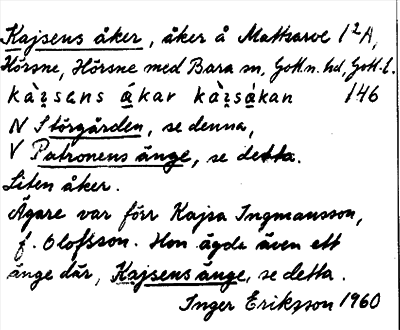 Kajsens åker, åker å Mattsarve 1²A,
Hörsne, Hörsne med Bara sn, Gotl. n. hd, Gotl. l.
kàɪsens ákar kàɪsákan 146
N Storgården, se denna,
V Patronens änge, se detta.
Liten åker.
Ägare var förr Kajsa Ingmansson,
f. Olofsson. Hon ägde även ett
änge där, Kajsens änge, se detta.
Inger Eriksson 1960